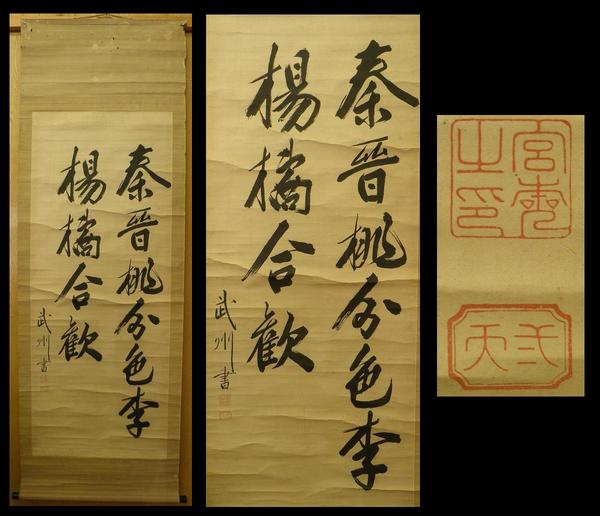 秦晉桃分色李
楊橘合歡
武州書
秦晉桃分色李
楊橘合歡
武州書